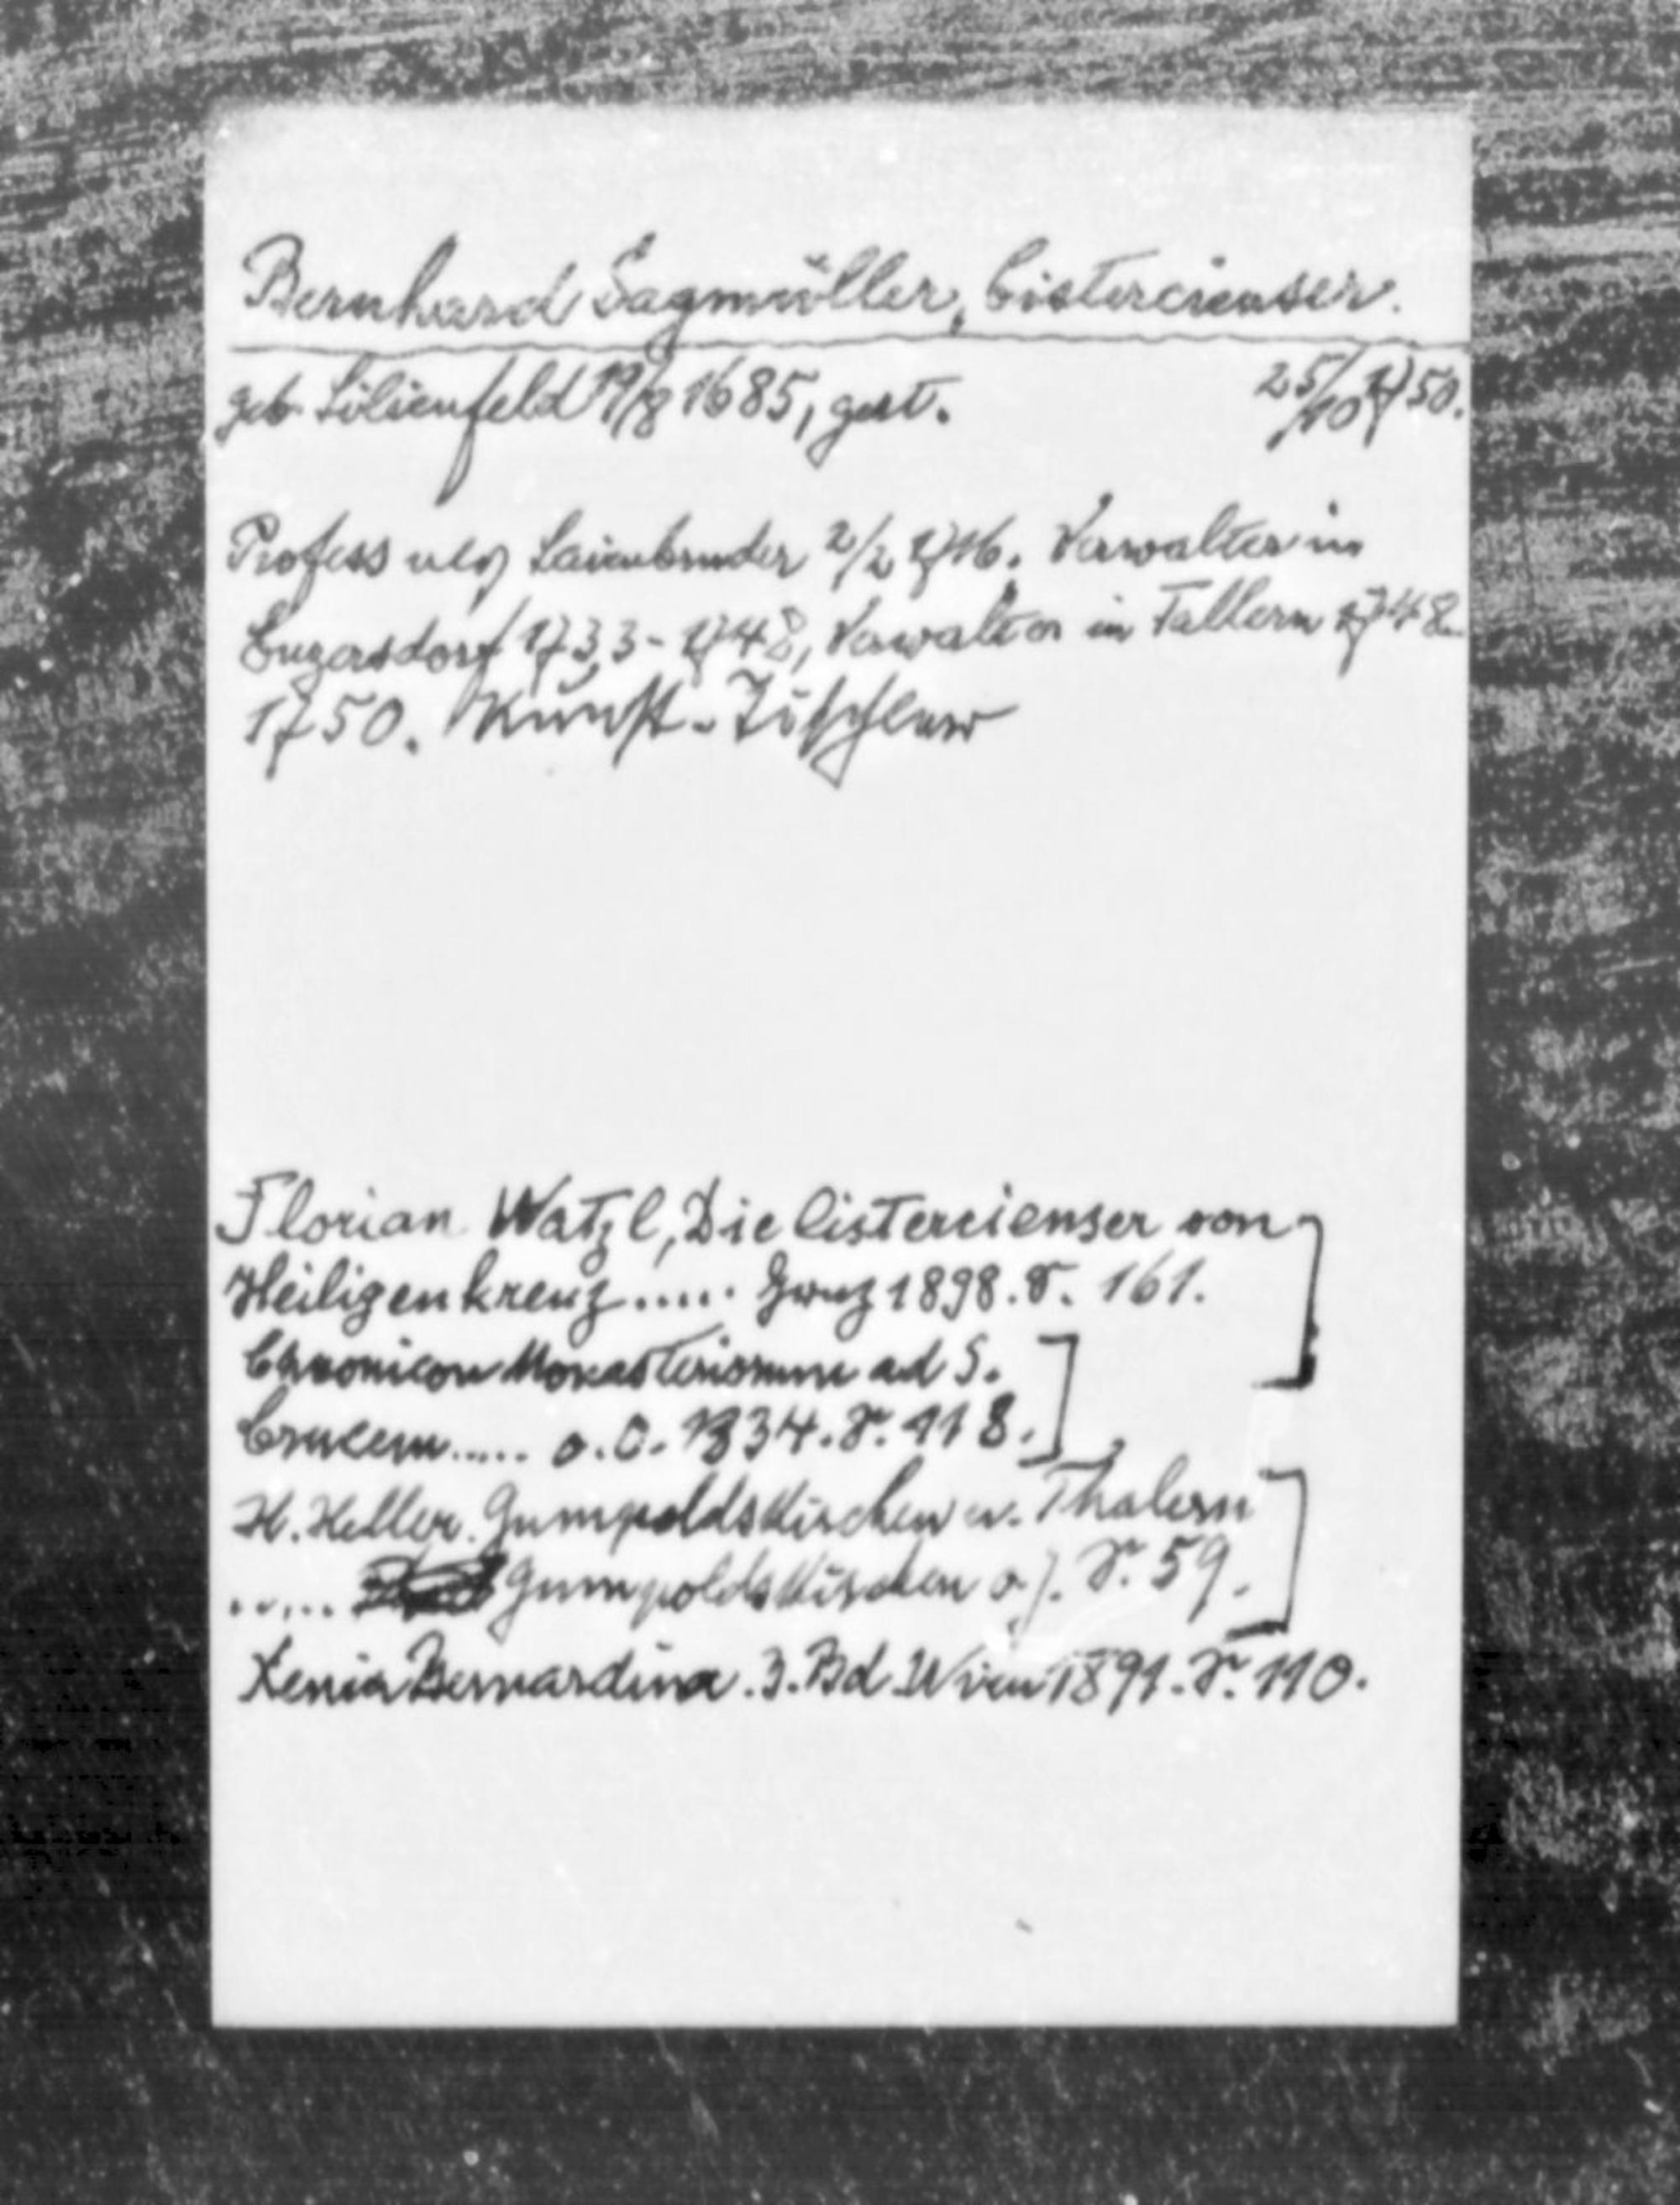 Bernhard Sagmüller, Cistercienser.
geb. Lilienfeld 19/8 1685, gest. 25/10 1750.
Profess als Laienbruder 2/2 1716. Verwalter in
Enzersdorf 1733-1748, Verwalter in Tallern 1748-
1750. Kunst-Tischler
Florian Watzl, Die Cistercienser von
Heiligenkreuz ..... Graz 1898. S. 161.
Chronicon Monasteriorum ad S.
Crucem ..... o. O. 1834. S. 118.
H. Heller. Gumpoldskirchen u. Thalern
..... Gumpoldskirchen o. J. S. 59.
Xenia Bernardina. 3. Bd. Wien 1891. S. 110.